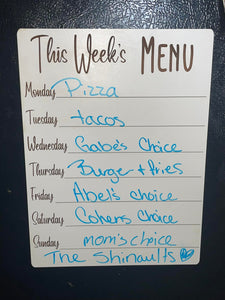 This Week's MENU
Monday Pizza
Tuesday tacos
Wednesday Gabe's Choice
Thursday Burger + fries
Friday Abel's choice
Saturday Cohens Choice
Sunday mom's choice
The Shinaults